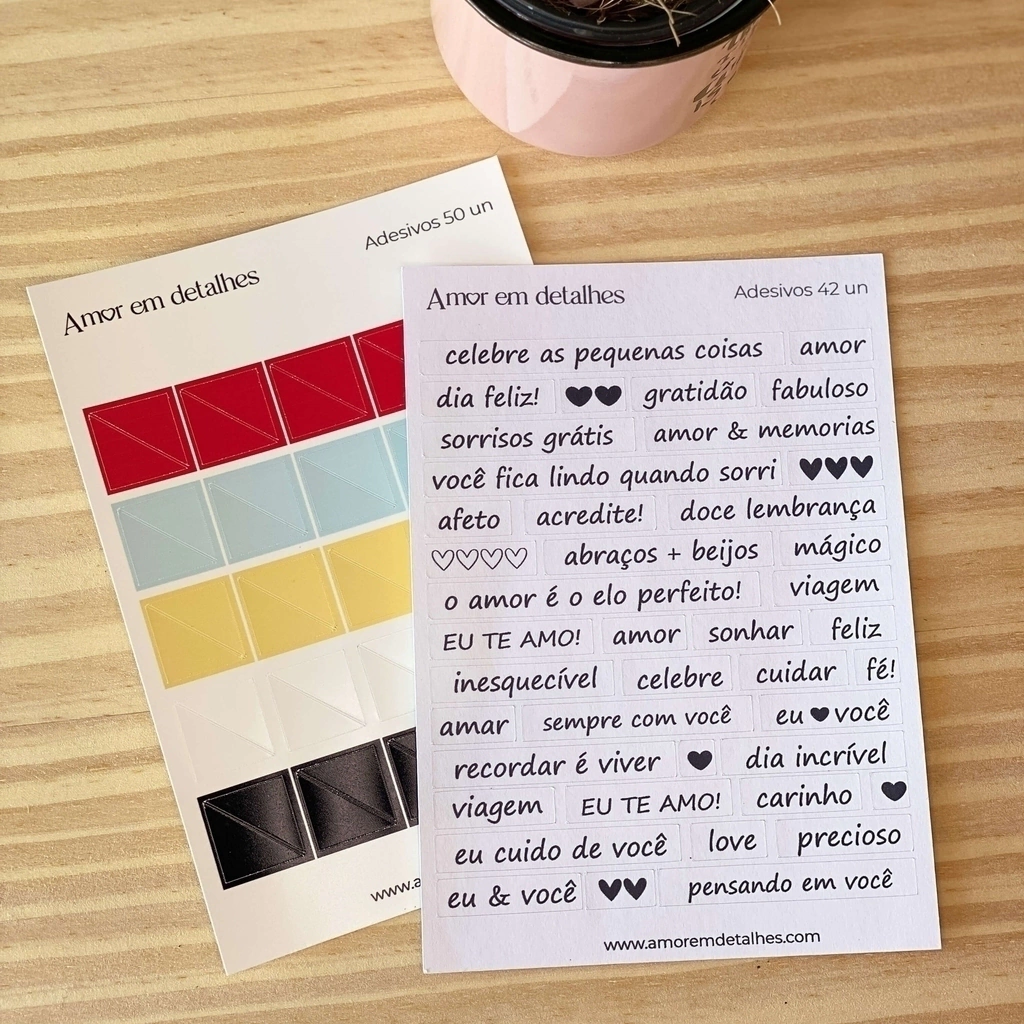 Amor em detalhes
Adesivos 50 un
www.a
Amor em detalhes
Adesivos 42 un
celebre as pequenas coisas amor
dia feliz! ♥♥ gratidão fabuloso
sorrisos grátis amor & memorias
você fica lindo quando sorri ♥♥♥
afeto acredite! doce lembrança
♡♡♡♡ abraços + beijos mágico
o amor é o elo perfeito! viagem
EU TE AMO! amor sonhar feliz
inesquecível celebre cuidar fé!
amar sempre com você eu ♥ você
recordar é viver ♥ dia incrível
viagem EU TE AMO! carinho ♥
eu cuido de você love precioso
eu & você ♥♥ pensando em você
www.amoremdetalhes.com